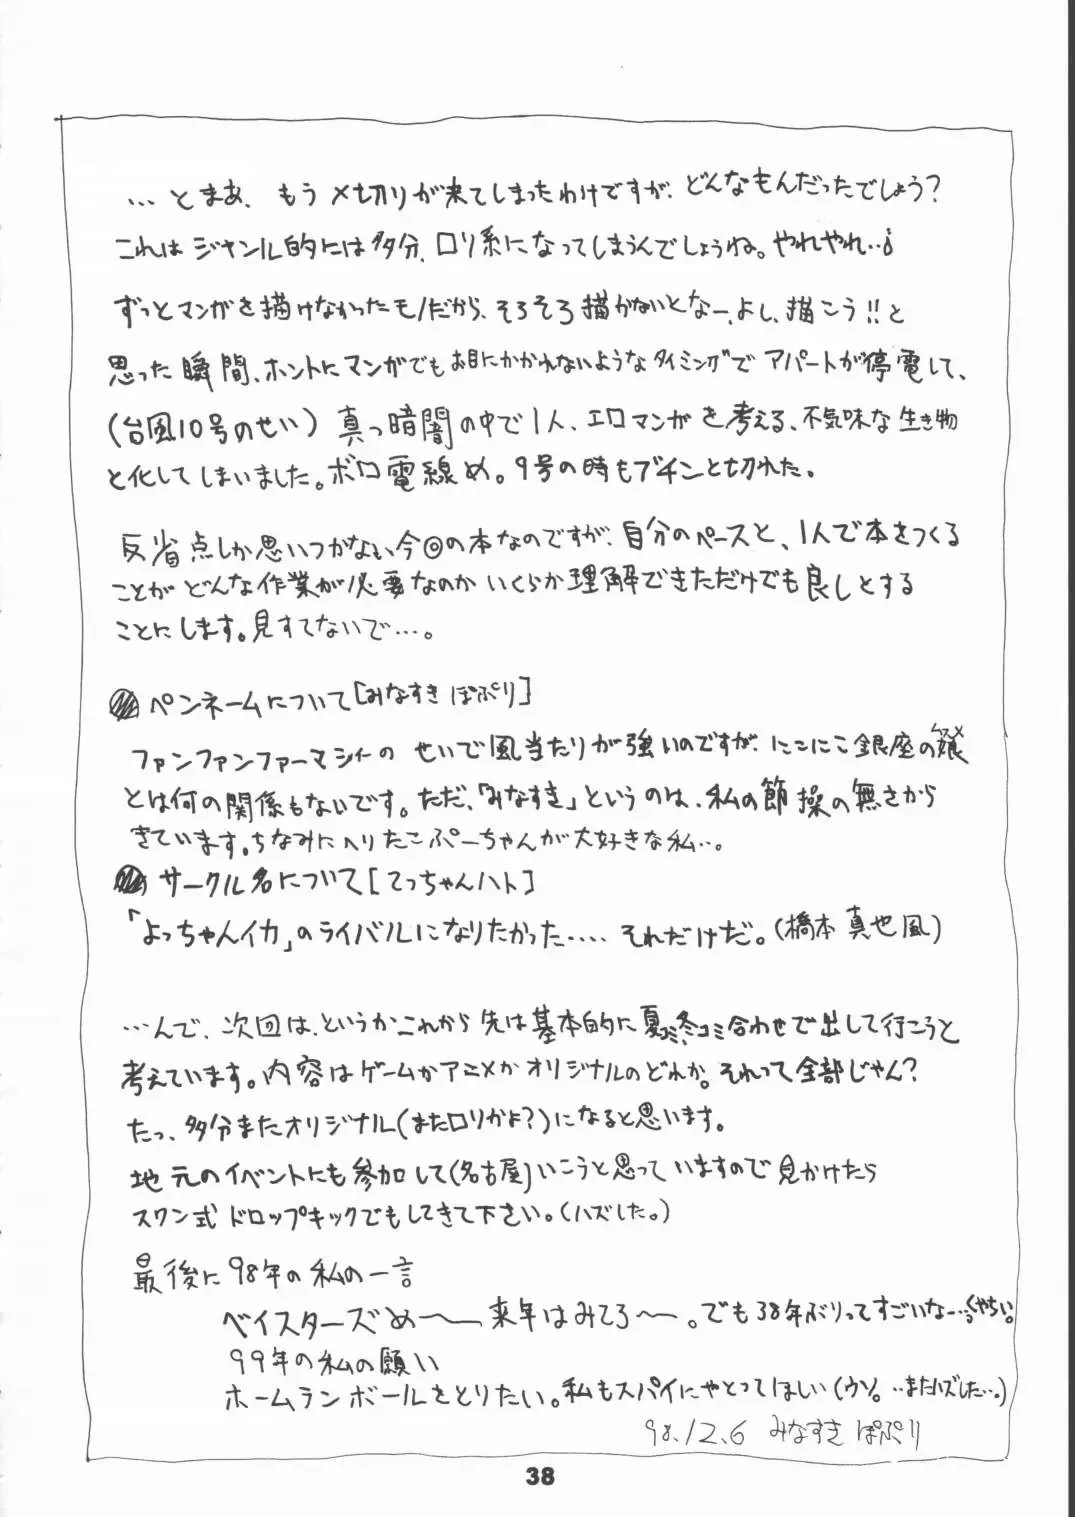 …とまあ、もう〆切りが来てしまったわけですが、どんなもんだったでしょう？
これはジャンル的には多分、ロリ系になってしまうんでしょうね。やれやれ…
ずっとマンガを描けなかったモノだから、そろそろ描かないとなー、よし、描こう!!と
思った瞬間、ホントにマンガでもお目にかかれないようなタイミングでアパートが停電して、
(台風10号のせい) 真っ暗闇の中で1人、エロマンガを考える、不気味な生き物
と化してしまいました。ボロ電線め。9号の時もブチンと切れた。
反省点しか思いつかない今回の本なのですが、自分のペースと、1人で本をつくる
ことがどんな作業が必要なのかいくらか理解できただけでも良しとする
ことにします。見すてないで…。
ペンネームについて[みなすきぽぷり]
ファンファンファーマシィーのせいで風当たりが強いのですが、にこにこ銀座の娘
ムスメ
とは何の関係もないです。ただ、「みなすき」というのは、私の節操の無さから
きています。ちなみにへりたこぷーちゃんが大好きな私…。
サークル名について[てっちゃんハト]
「よっちゃんイカ」のライバルになりたかった….. それだけだ。(橋本真也風)
…んで、次回は、というかこれから先は基本的に夏コミ冬コミ合わせで出して行こうと
考えています。内容はゲームかアニメかオリジナルのどれか。それって全部じゃん？
たっ、多分またオリジナル(またロリかよ？)になると思います。
地元のイベントにも参加して(名古屋)いこうと思っていますので見かけたら
スワン式ドロップキックでもしてきて下さい。(ハズした。)
最後に98年の私の一言
ベイスターズめ〜来年はみてろ〜。でも38年ぶりってすごいなー…くやちい。
99年の私の願い
ホームランボールをとりたい。私もスパイにやとってほしい(ウソ。…またハズした…。)
98.12.6 みなすきぽぷり
38